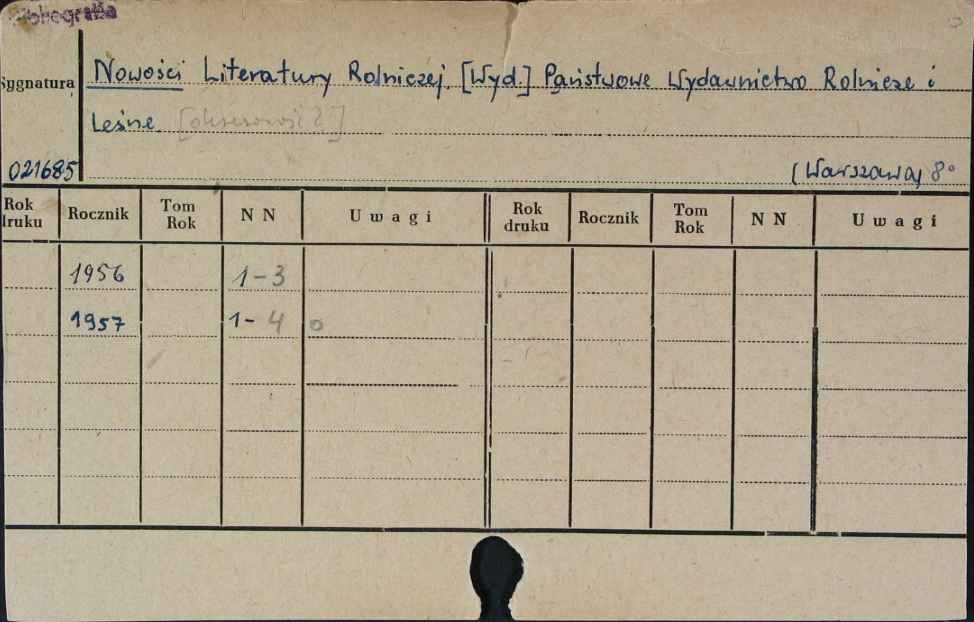 Bibliografia
Sygnatura
Nowości Literatury Rolniczej. [Wyd.] Państwowe Wydawnictwo Rolnicze i
Leśne
021685
(Warszawa) 8°
Rok druku Rocznik Tom Rok N N Uwagi Rok druku Rocznik Tom Rok N N Uwagi
1956 1-3
1957 1-4 o